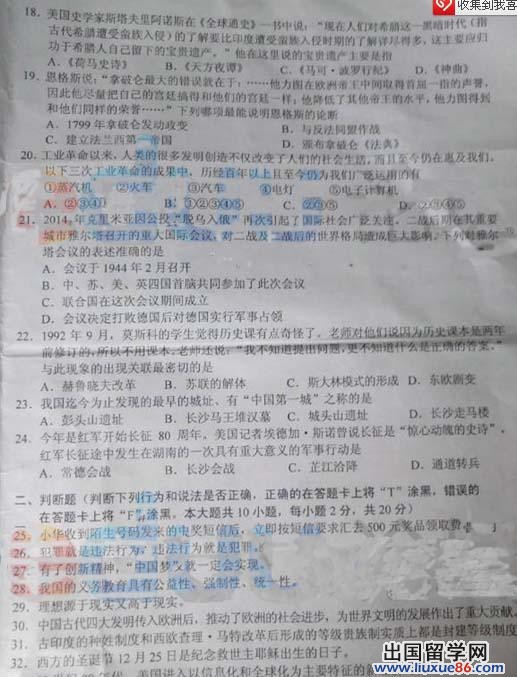 收集到我喜
18. 美国史学家斯塔夫里阿诺斯在《全球通史》一书中说：“现在人们对希腊这一黑暗时代（指
古代希腊遭受蛮族入侵）的了解要比印度遭受蛮族入侵时期的了解详尽得多，这主要应归
功于希腊人自己留下的宝贵遗产。”他在这里说的宝贵遗产主要是指
A.《荷马史诗》 B.《天方夜谭》 C.《马可·波罗行纪》 D.《神曲》
19. 恩格斯说：“拿破仑最大的错误就在于：……他力图在欧洲帝王中间取得首屈一指的声誉，
因此他尽量把自己的宫廷搞得和他们的宫廷一样，他降低了其他帝王的水平，他力图得到
和他们同样的荣誉……”下列哪项最能说明恩格斯的论断
A. 1799年拿破仑发动政变 B. 与反法同盟作战
C. 建立法兰西第一帝国 D. 颁布拿破仑《法典》
20. 工业革命以来，人类的很多发明创造不仅改变了人们的社会生活，而且至今仍在惠及我们。
以下三次工业革命的成果中，历经百年以上且至今仍为我们广泛运用的有
①蒸汽机 ②火车 ③汽车 ④电灯 ⑤电子计算机
A. ②③④ B. ①②③④ C. ②③④⑤ D.
21. 2014年克里米亚因公投“脱乌入俄”再次引起了国际社会广泛关注。二战后期在其重要
城市雅尔塔召开的重大国际会议，对二战及二战后的世界格局造成巨大影响。下列对雅尔
塔会议的表述准确的是
A. 会议于1944年2月召开
B. 中、苏、美、英四国首脑共同参加了此次会议
C. 联合国在这次会议期间成立
D. 会议决定打败德国后对德国实行军事占领
22. 1992年9月，莫斯科的学生觉得历史课有点奇怪了。老师对他们说因为历史课本是两年
前修订的，所以不用课本。老师还说：“我不知道提出问题，更不知道什么是正确的答案。”
与此现象的出现关联最密切的是
A. 赫鲁晓夫改革 B. 苏联的解体 C. 斯大林模式的形成 D. 东欧剧变
23. 我国迄今为止发现的最早的城址、有“中国第一城”之称的是
A. 彭头山遗址 B. 长沙马王堆汉墓 C. 城头山遗址 D. 长沙走马楼
24. 今年是红军开始长征80周年。美国记者埃德加·斯诺曾说长征是“惊心动魄的史诗”。
红军长征途中发生在湖南的一次具有重大意义的军事行动是
A. 常德会战 B. 长沙会战 C. 芷江洽降 D. 通道转兵
二、判断题（判断下列行为和说法是否正确，正确的在答题卡上将“T”涂黑，错误的
在答题卡上将“F”涂黑。本大题共10小题，每小题2分，共20分）
25. 小华收到陌生号码发来的中奖短信后，立即按短信要求汇去500元奖品领取费。
26. 犯罪就是违法行为，违法行为就是犯罪。
27. 有了创新精神，“中国梦”就一定会实现。
28. 我国的义务教育具有公益性、强制性、统一性。
29. 理想源于现实又高于现实。
30. 中国古代四大发明传入欧洲后，推动了欧洲的社会进步，为世界文明的发展作出了重大贡献。
31. 古印度的种姓制度和西欧查理·马特改革后形成的等级贵族制实质上都是封建等级制度
32. 西方的圣诞节12月25日是纪念救世主耶稣出生的日子。
美国进入以信息化和全球化为主要特征的
出国留学网
www.liuxue86.com